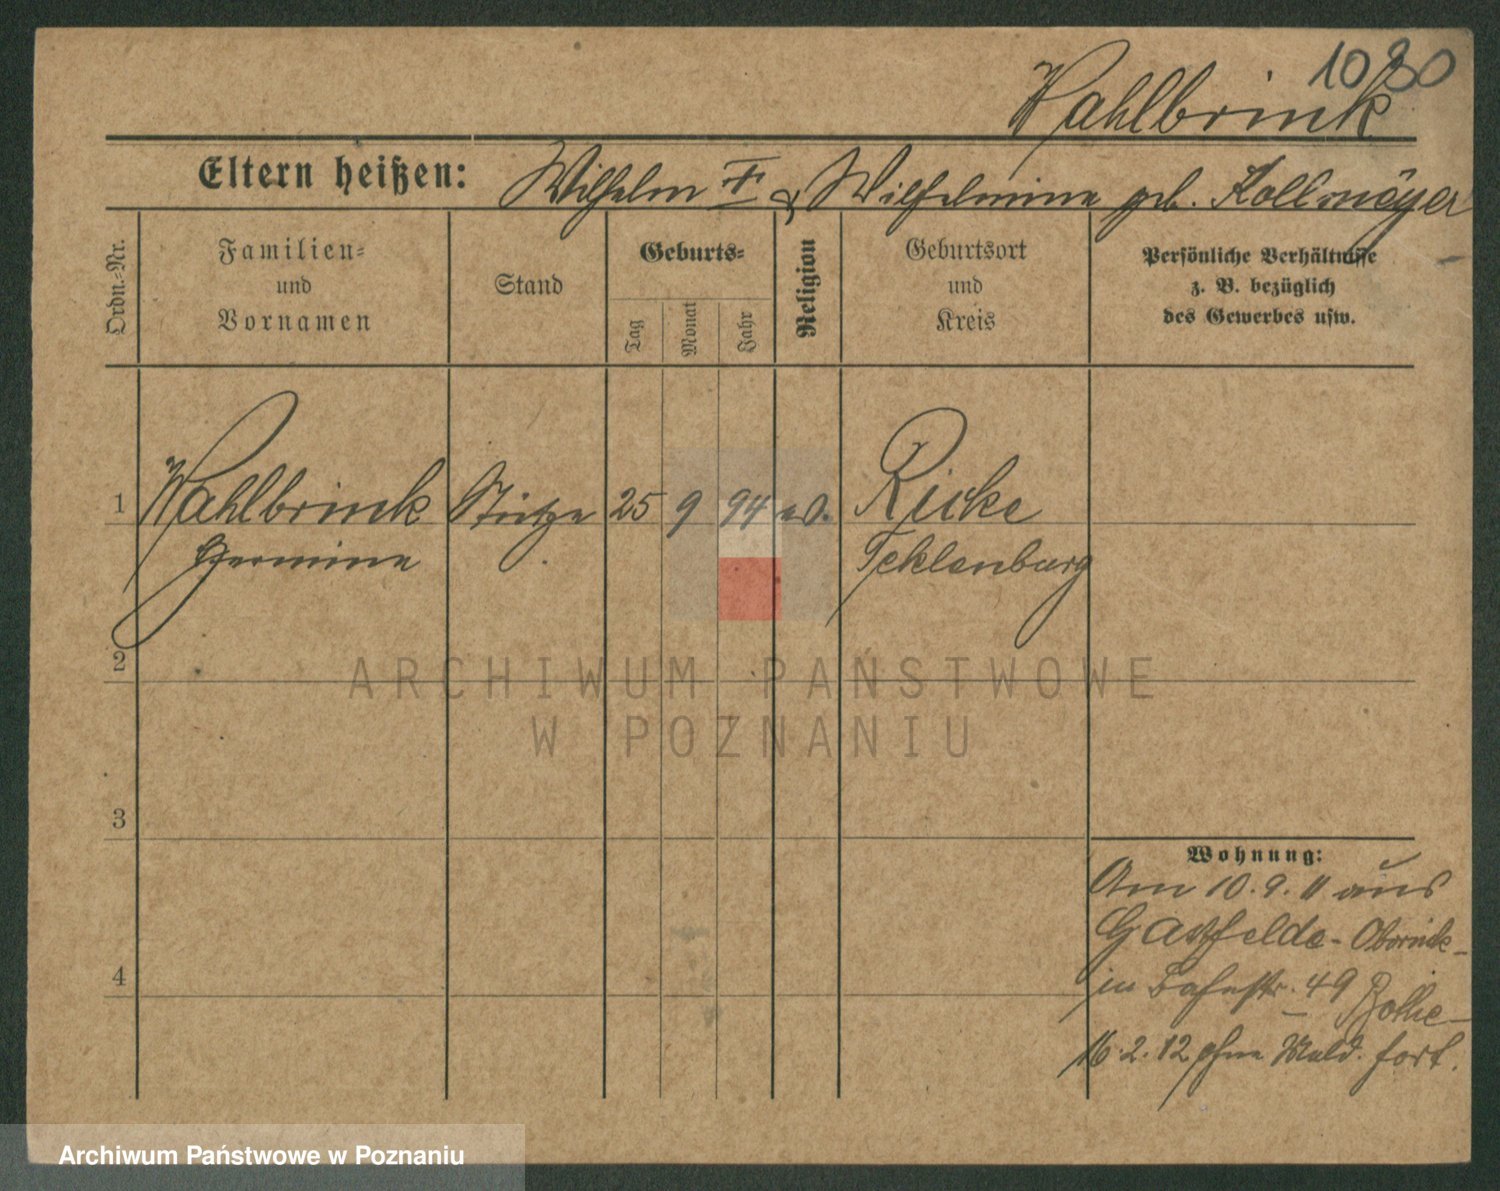 1080
Wahlbrink
Eltern heißen: Wilhelm I & Wilhelmine geb. Kollmeyer
Ordn.=Nr.
Familien=
und
Vornamen
Stand
Geburts=
Tag
Monat
Jahr
Religion
Geburtsort
und
Kreis
Persönliche Verhältnisse
z. B. bezüglich
des Gewerbes usw.
1 Wahlbrink Stütze 25 9 94 Ricke
Hermine Teklenburg
2
ARCHIWUM PAŃSTWOWE
W POZNANIU
3
Wohnung:
Am 10.9.11 aus
Obornik-
4
in Bahnstr. 49 Bothe-
16.2.12 ohne Meld. fort.
Archiwum Państwowe w Poznaniu